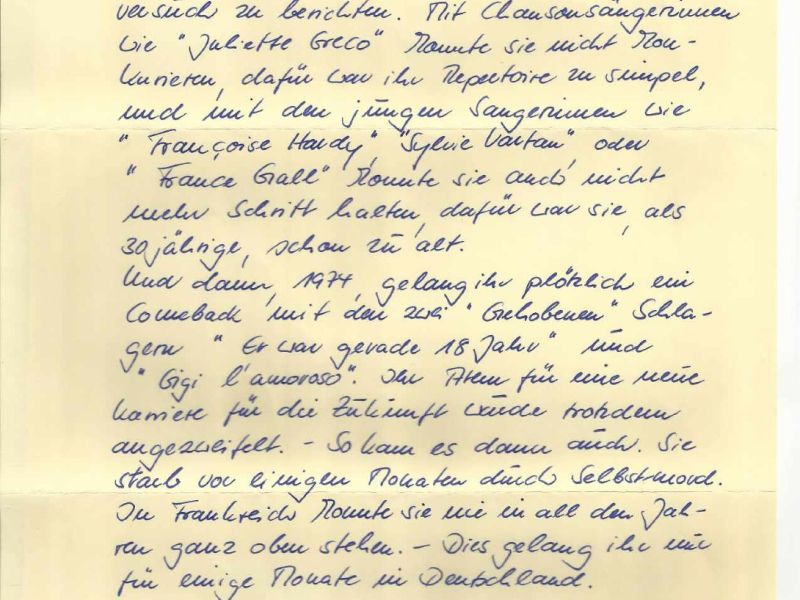 versuch zu berichten. Mit Chansonsängerinnen
wie "Juliette Greco" konnte sie nicht kon-
kurieren, dafür war ihr Repertoire zu simpel,
und mit den jungen Sängerinnen wie
"Françoise Hardy", "Sylvie Vartan", oder
"France Gall" konnte sie auch nicht
mehr Schritt halten, dafür war sie, als
30 jährige, schon zu alt.
Und dann, 1974, gelang ihr plötzlich ein
Comeback mit den zwei "Gehobenen" Schla-
gern "Er war gerade 18 Jahr" und
"Gigi l'amoroso". Ihr Atem für eine neue
Karriere für die Zukunft wurde trotzdem
angezweifelt. - So kam es dann auch. Sie
starb vor einigen Monaten durch Selbstmord.
In Frankreich konnte sie nie in all den Jah-
ren ganz oben stehen. - Dies gelang ihr nur
für einige Monate in Deutschland.